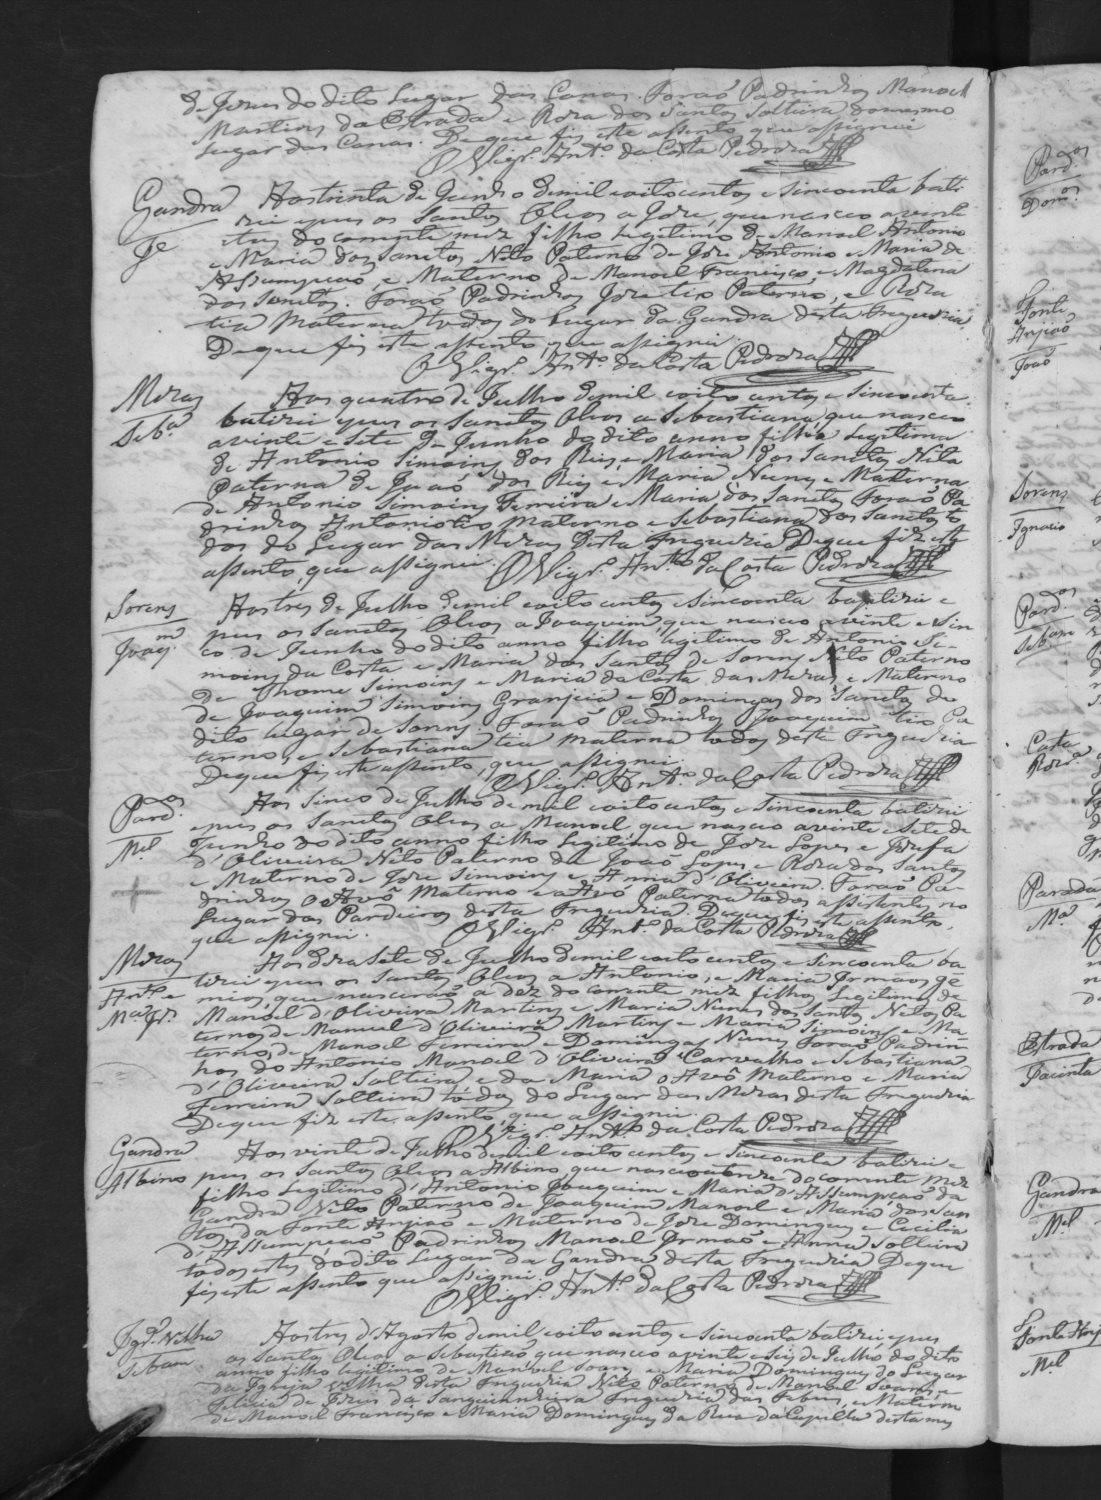 de Jesus do dito Lugar das Canas. Foraõ Padrinhos Manoel
Martins da Estrada e Roza dos Santos Solteira do mesmo
Lugar das Canas. Deque fiz este assento, que assignei
O Vigr.º Ant.º da Costa Pedroza
Gandra
Je
Aos trinta de Junho demil eoito centos e sincoenta bati
zei epus os Santos Oleos a Joze, que nasceo a vinte
e tres do corrente mez filho Legitimo de Manoel Antonio
e Maria dos Santos Neto Paterno de Joze Antonio e Maria de
Assumpçaõ, e Materno de Manoel Francisco, e Magdalena
dos Santos. Foraõ Padrinhos Joze tio Paterno, e Roza
tia Materna todos do Lugar da Gandra desta Freguezia
Deque fiz este assento, que assignei.
O Vigr.º Ant.º da Costa Pedroza
Meras
Seb.ª
Aos quatro de Julho demil eoito centos e sincoenta
batizei epus os Santos Oleos a Sebastiana, que nasceo
a vinte e sete de Junho do dito anno filha Legitima
de Antonio Simoins dos Reis, e Maria dos Santos Neta
Paterna de Joaõ dos Reis e Maria Nunes e Materna
de Antonio Simoins Ferreira e Maria dos Santos Foraõ Pa
drinhos Antonio tio Materno e Sebastiana dos Santos to
dos do Lugar das Meras desta Freguezia Deque fiz este
assento, que assignei.
O Vigr.º Ant.º da Costa Pedroza
Sorens
Joaq.m
Aos tres de Julho demil eoito centos e sincoenta baptizei e
pus os Santos Oleos a Joaquim, que nasceo a vinte e sin
co de Junho do dito anno filho Legitimo de Antonio Si-
moins da Costa e Maria dos Santos de Sorens Neto Paterno
de Thome Simoins e Maria da Costa das Meras e Materno
de Joaquim Simoins Granjeia e Domingas dos Santos do
dito lugar de Sorens Foraõ Padrinhos Joaquim tio Pa
terno, e Sebastiana tia Materna todos desta Freguezia
Deque fiz este assento, que assignei.
O Vigr.º Ant.º da Costa Pedroza
Pard.os
M.el
Aos sinco de Julho demil eoito centos e sincoenta batizei
epus os Santos Oleos a Manoel, que nasceo a vinte e sete de
Junho do dito anno filho Legitimo de Joze Lopes e Jozefa
d'Oliveira Neto Paterno de Joaõ Lopes e Roza dos Santos
e Materno de Joze Simoins e Anna d'Oliveira. Foraõ Pa-
drinhos o Avô Materno e a Avó Paterna todos assistentes no
Lugar dos Pardieiros desta Freguezia Deque fiz este assento,
que assignei.
O Vigr.º Ant.º da Costa Pedroza
Meras
Ant.º e
M.ª
Aos dezasete de Julho demil eoito centos e sincoenta ba
tizei epus os Santos Oleos a Antonio, e Maria Irmaos gé
mios, que nasceraõ a doz do corrente mez filhos Legitimos de
Manoel d'Oliveira Martins e Maria Nunes dos Santos Netos Pa
ternos de Manuel d'Oliveira Martins e Maria Simoins e Ma
ternos de Manoel Ferreira e Domingas Nunes Foraõ Padrin
hos do Antonio Manoel d'Oliveira Carvalho e Sebastiana
d'Oliveira Solteira, e da Maria o Avô Materno e Maria
Ferreira Solteira todos do Lugar das Meras desta Freguezia
Deque fiz este assento, que assignei.
O Vigr.º Ant.º da Costa Pedroza
Gandra
Albino
Aos vinte de Julho demil eoito centos e sincoenta batizei e
pus os Santos Oleos a Albino que nasceo a onze do corrente mez
filho Legitimo d'Antonio Joaquim e Maria d'Assumpçaõ da
Gandra Neto Paterno de Joaquim Manoel e Maria dos San
tos da Fonte Anjiaõ e Materno de Joze Domingues e Cecilia
d'Assumpçaõ Padrinhos Manoel Irmaõ e Anna Solteira
todos estes do dito Lugar da Gandra desta Freguezia Deque
fiz este assento que assignei.
O Vigr.º Ant.º da Costa Pedroza
Igr.ª Velha
Sebam
Aos tres d'Agosto demil eoito centos e sincoenta batizei, epus
os Santos Oleos a Sebastiaõ, que nasceo a vinte e seis de Julho do dito
anno filho legitimo de Manoel Soares, e Maria Domingues do Lugar
da Igreja velha desta Freguezia Neto Paterno de Manoel Soares e
Felicia de Jezus da Sanguinheira Freguezia das Febres, e Materno
de Manoel Francisco e Maria Domingues da Rua da Capella desta mes
Pard.os
Doro.
Fonte
Anjiaõ
Joaõ
Sorens
Ignacio
Pard.os
Sebam
Costa
Roz.ª
Parada
M.ª
Estrada
Jacinta
Gandra
M.el
Fonte Anj
M.el